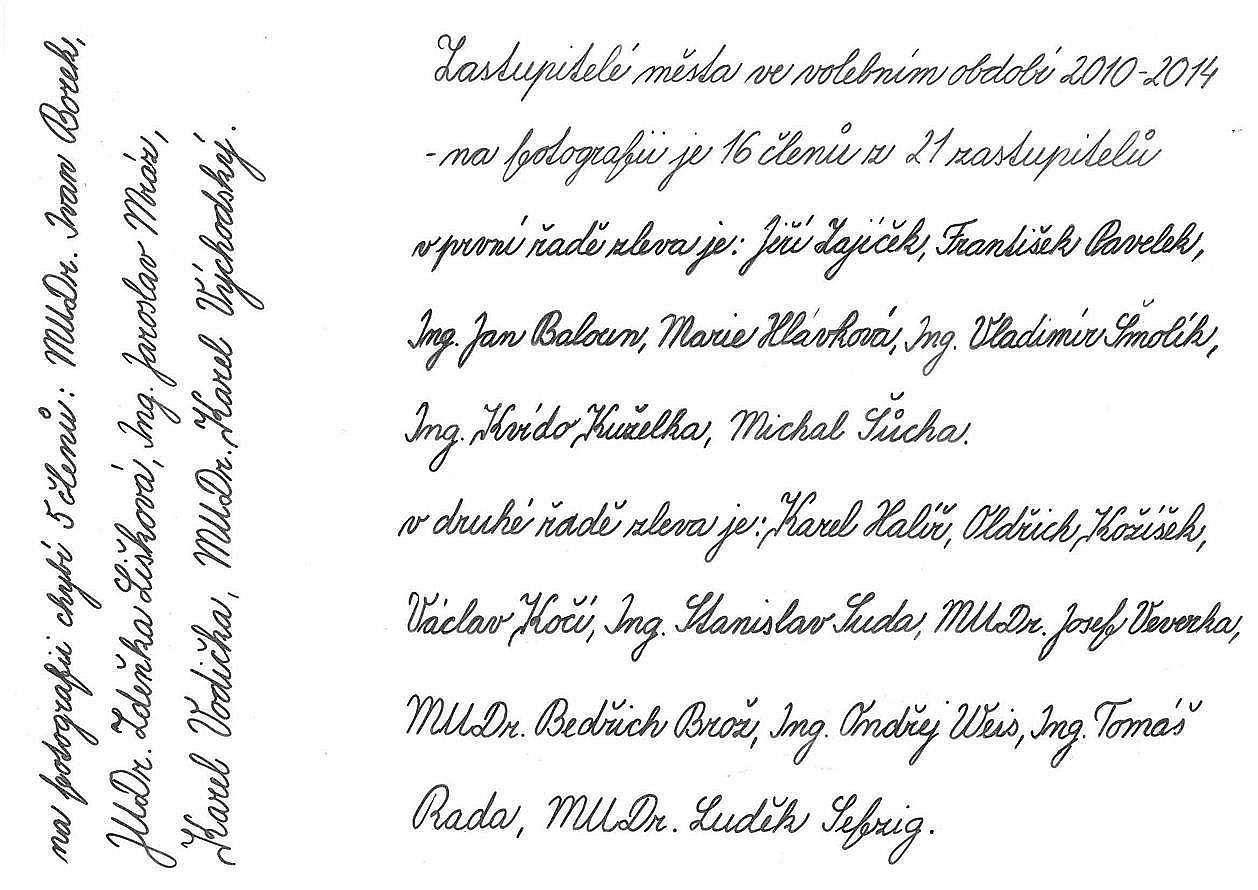 Zastupitelé města ve volebním období 2010-2014
- na fotografii je 16 členů z 21 zastupitelů
v první řadě zleva je: Jiří Zajíček, František Pavelek,
Ing. Jan Baloun, Marie Hlávková, Ing. Vladimír Šmolík,
Ing. Kvído Kuželka, Michal Šůcha.
v druhé řadě zleva je: Karel Halíř, Oldřich Kožíšek,
Václav Kočí, Ing. Stanislav Suda, MUDr. Josef Veverka,
MUDr. Bedřich Brož, Ing. Ondřej Weis, Ing. Tomáš
Rada, MUDr. Luděk Sefzig.
na fotografii chybí 5 členů: MUDr. Ivan Borek,
JUDr. Zdeňka Lišková, Ing. Jaroslav Mráz,
Karel Vodička, MUDr. Karel Východský.